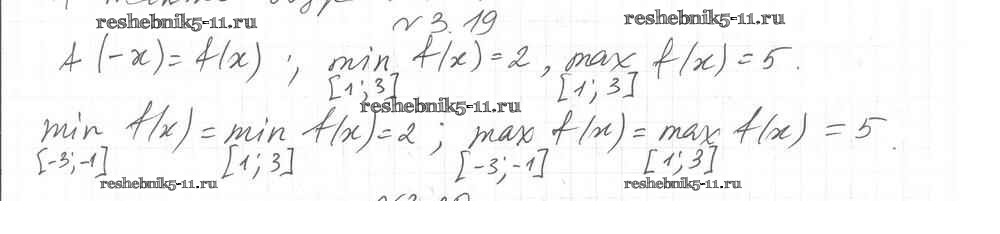 reshebnik5-11.ru
reshebnik5-11.ru
№ 3.19
f(-x) = f(x) ; min f(x) = 2, max f(x) = 5.
[1; 3] [1; 3]
reshebnik5-11.ru
min f(x) = min f(x) = 2 ; max f(x) = max f(x) = 5.
[-3; -1] [1; 3] [-3; -1] [1; 3]
reshebnik5-11.ru
reshebnik5-11.ru